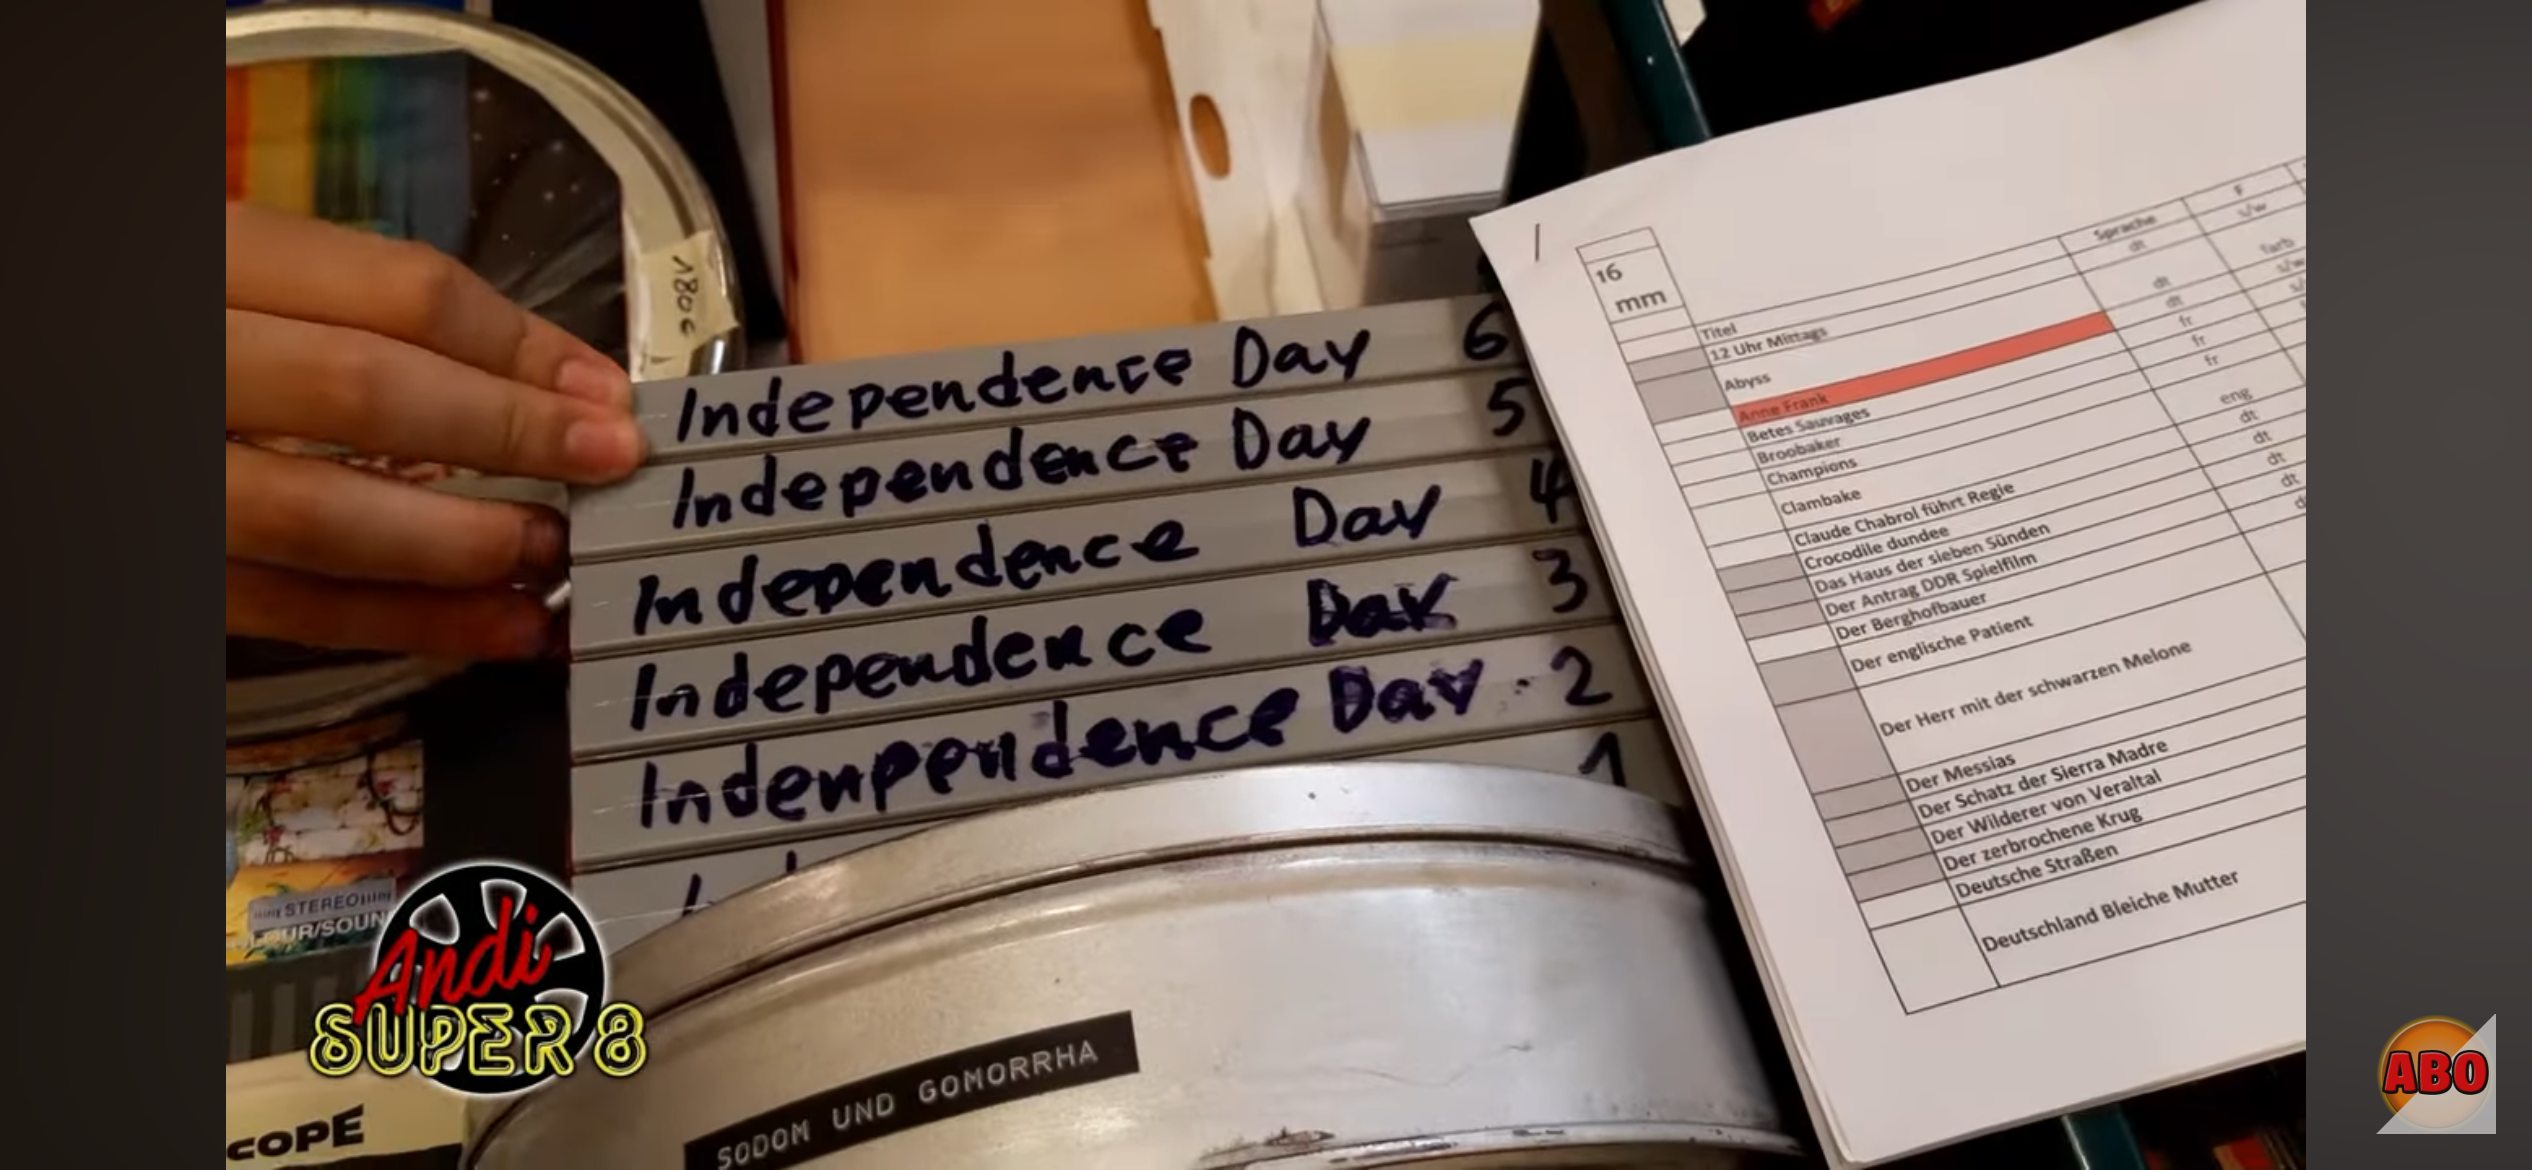 180€
Independence Day 6
Independence Day 5
Independence Day 4
Independence Day 3
Indenpendence Day 2
1
STEREO
COLOUR/SOUND
Andi
SUPER 8
COPE
SODOM UND GOMORRHA
16
mm
Titel Sprache F
12 Uhr Mittags dt s/w
Abyss dt farb
Anne Frank dt s/w
Betes Sauvages fr
Broobaker fr
Champions fr
Clambake eng
Claude Chabrol führt Regie dt
Crocodile dundee dt
Das Haus der sieben Sünden dt
Der Antrag DDR Spielfilm dt
Der Berghofbauer
Der englische Patient
Der Herr mit der schwarzen Melone
Der Messias
Der Schatz der Sierra Madre
Der Wilderer von Veraltal
Der zerbrochene Krug
Deutsche Straßen
Deutschland Bleiche Mutter
ABO